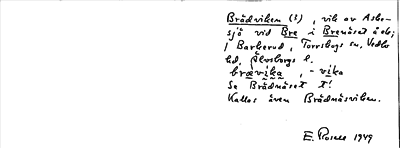 Brädviken (?), vik av Asbo-
sjö vid Bre i Brenäset äob;
/ Barkerud, Torrskogs sn, Vedbo
hd, Älvsborgs l.
brævika, -vika
Se Brädnäset t!
Kallas även Brädnäsviken.
E. Rosell 1949